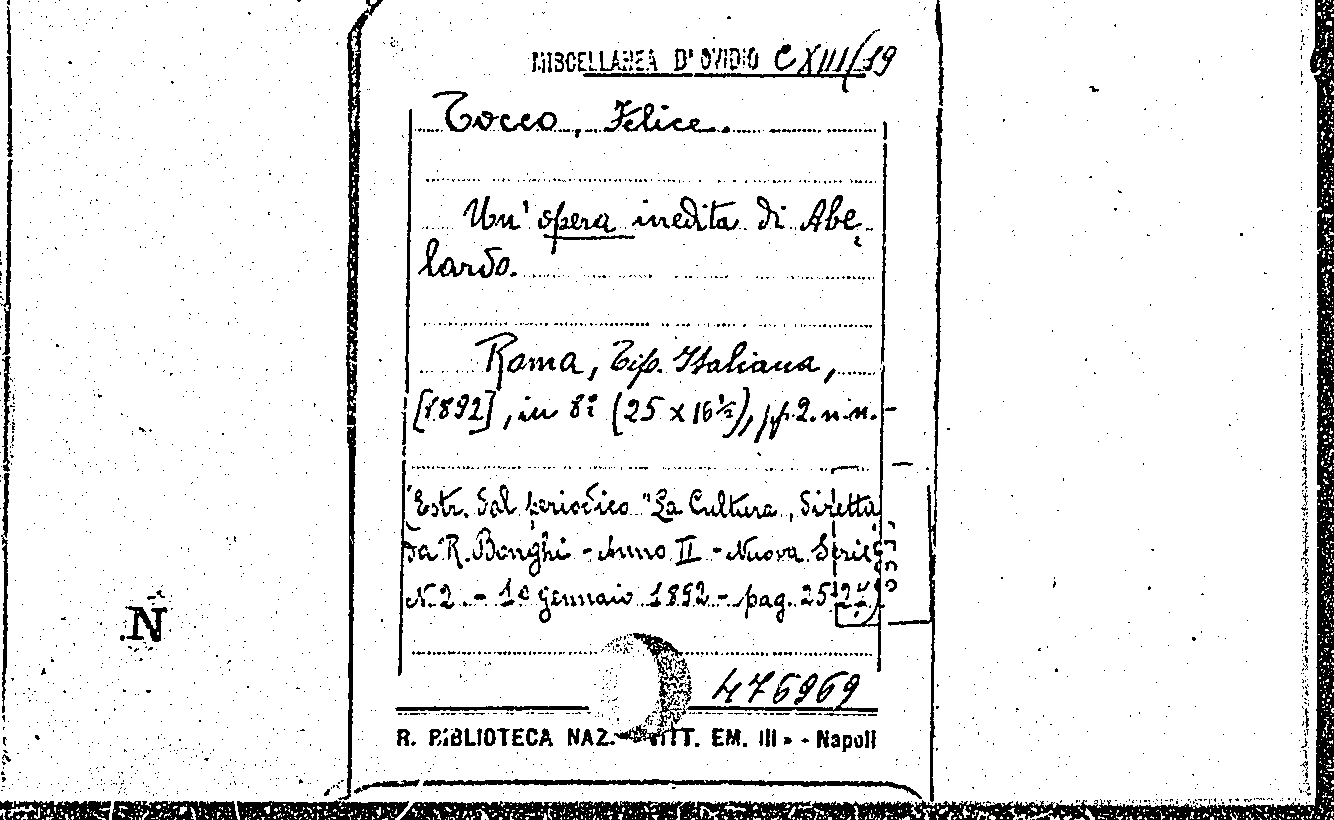 MISCELLANEA D'OVIDIO C XIII/19
Tocco, Felice.
Un' opera inedita di Abe-
lardo.
Roma, Tip. Italiana,
[1892], in 8º (25 x 16½), pp. 2. n. n. -
(Estr. dal periodico "La Cultura, diretta
da R. Bonghi - Anno II - Nuova Serie
N. 2. - 1º gennaio 1892 - pag.
476969
R. BIBLIOTECA NAZ. VITT. EM. III » - Napoli
N